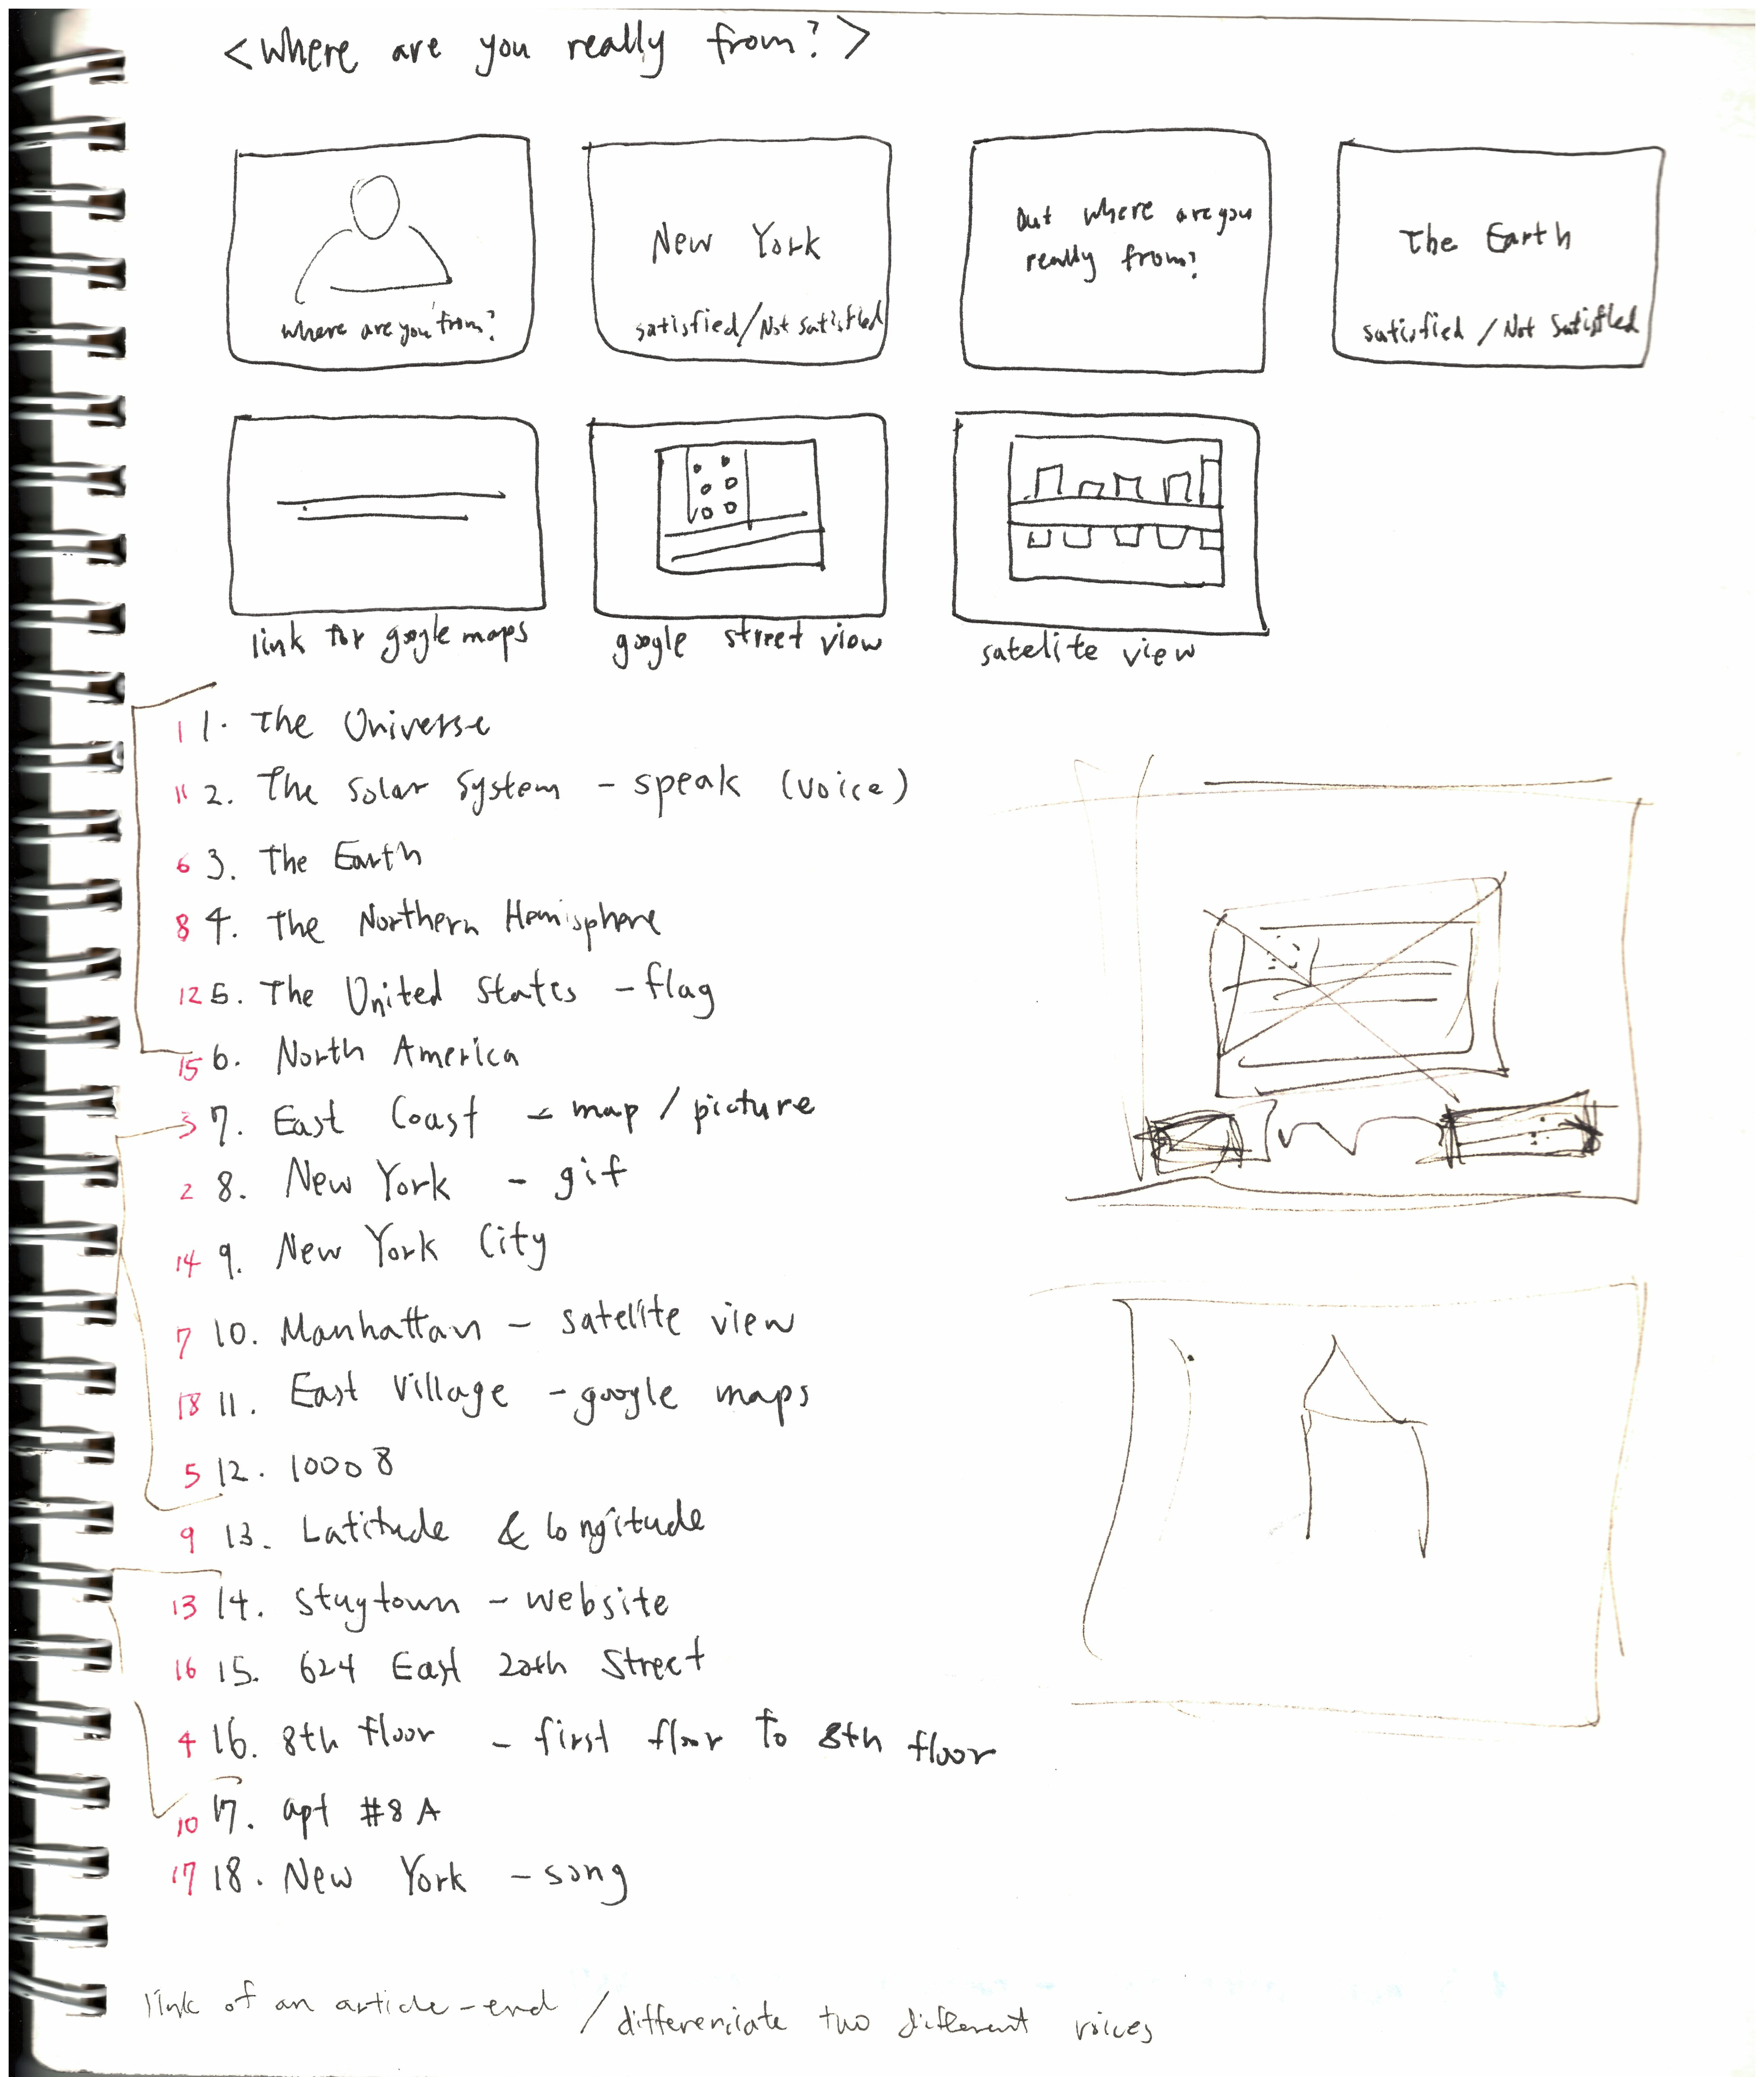 <Where are you really from?>
where are you from?
New York
satisfied/Not satisfied
but where are you
really from?
The Earth
satisfied/Not Satisfied
link for google maps
google street view
satelite view
1 1. The Universe
11 2. The Solar System - speak (voice)
6 3. The Earth
8 4. The Northern Hemisphere
12 5. The United States - flag
15 6. North America
3 7. East Coast - map / picture
2 8. New York - gif
14 9. New York City
7 10. Manhattan - satelite view
18 11. East Village - google maps
5 12. 10008
9 13. Latitude & longitude
13 14. Stuytown - website
16 15. 624 East 20th Street
4 16. 8th floor - first floor to 8th floor
10 17. apt #8A
17 18. New York - song
link of an article-end / differenciate two different voices